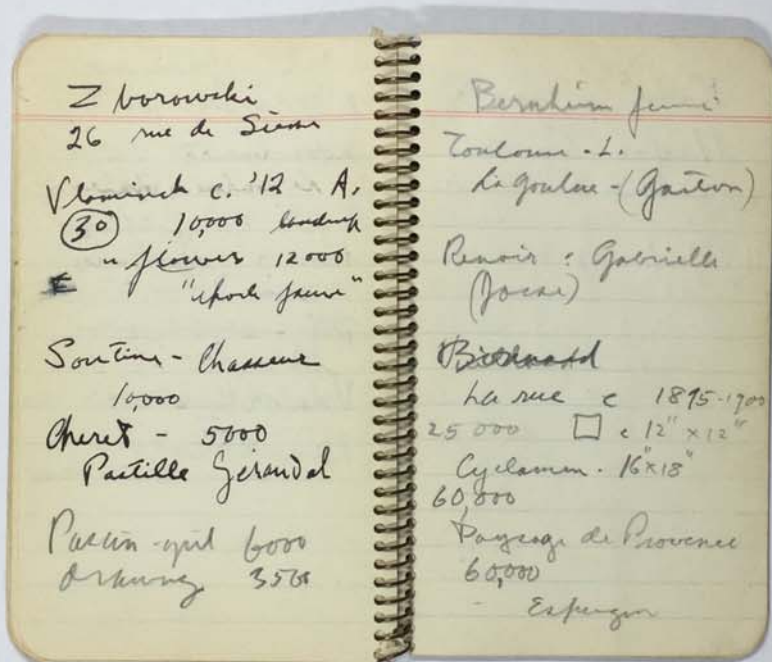 Zborowski
26 rue de Seine
Vlaminck c. '12 A.
30 10,000 landscape
" flowers 12000
"époch fauve"
Soutine - Chasseur
10,000
Cheret - 5000
Pastille Gérandal
Pascin - girl 6000
drawing 3500
Bernheim Jeune
Toulouse - L.
La Goulue - (Gaston)
Renoir : Gabrielle
(Josse)
Bonnard
La rue c 1895-1900
25 000 c 12" x 12"
Cyclamen - 16" x 18"
60,000
Paysage de Provence
60,000
-